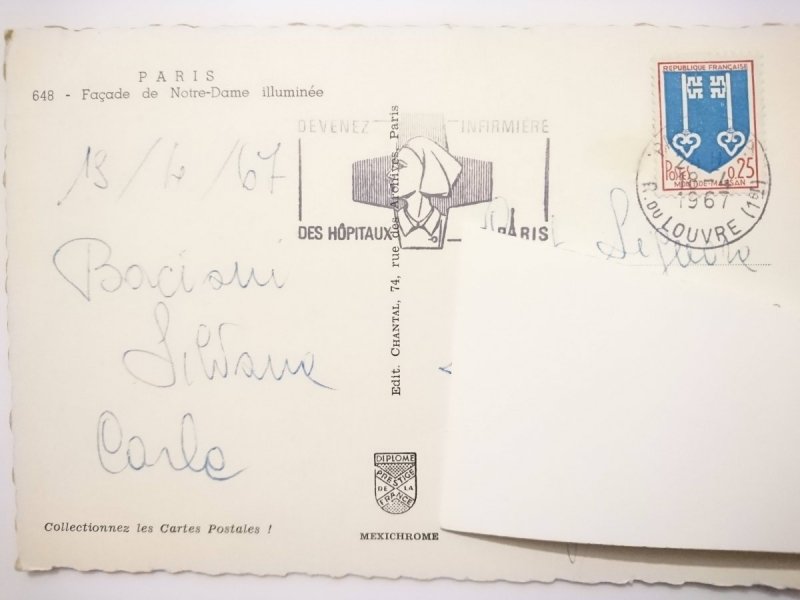 PARIS
648 - Façade de Notre-Dame illuminée
13/4/67
Bacioni
Silvana
Carla
Collectionnez les Cartes Postales !
DEVENEZ INFIRMIÈRE
DES HÔPITAUX PARIS
Edit. CHANTAL, 74, rue des Archives, Paris
DIPLOME
PRESTIGE
DE LA
FRANCE
MEXICHROME
REPUBLIQUE FRANÇAISE
POSTES 0,25
MONT-DE-MARSAN
1967
R. DU LOUVRE (1er)